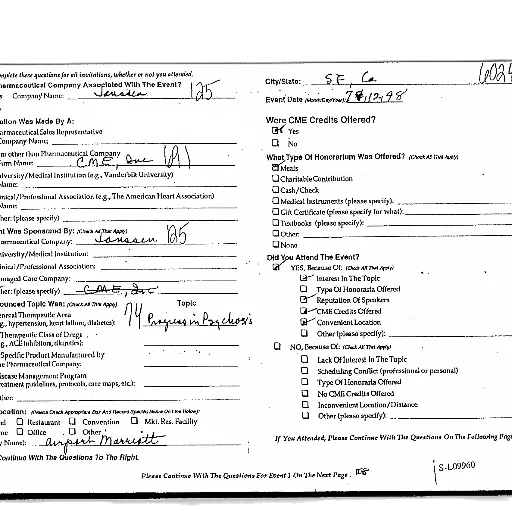 mplete these questions for all invitations, whether or not you attended.
harmaceutical Company Associated With The Event?
Company Name: Janssen 125
ation Was Made By A:
armaceutical Sales Representative
ompany Name:
m other than Pharmaceutical Company
irm Name: C.M.E, Inc
iversity/Medical Institution (e.g., Vanderbilt University)
Name:
nical/Professional Association (e.g., The American Heart Association)
Name:
her: (please specify)
nt Was Sponsored By: (Check All That Apply)
armaceutical Company: Janssen 125
iversity/Medical Institution:
nical/Professional Association:
anaged Care Company:
her: (please specify) C.M.E, Inc
ounced Topic Was: (Check All That Apply) Topic
neral Therapeutic Area
g., hypertension, heart failure, diabetes): 74 Progress in Psychosis
Therapeutic Class of Drugs
g., ACE inhibition, diuretics):
Specific Product Manufactured by
he Pharmaceutical Company:
isease Management Program
reatment guidelines, protocols, care maps, etc.):
ther:
ocation: (Please Check Appropriate Box And Record Specific Name On Line Below):
el Restaurant Convention Mkt. Res. Facility
me Office Other
y Name): Airport Marriott
Continue With The Questions To The Right.
City/State: S F, Ca.
Event Date (Month/Day/Year)
Were CME Credits Offered?
Yes
No
What Type Of Honorarium Was Offered? (Check All That Apply)
Meals
Charitable Contribution
Cash/Check
Medical Instruments (please specify):
Gift Certificate (please specify for what):
Textbooks (please specify):
Other:
None
Did You Attend The Event?
YES, Because Of: (Check All That Apply)
Interest In The Topic
Type Of Honoraria Offered
Reputation Of Speakers
CME Credits Offered
Convenient Location
Other (please specify):
NO, Because Of: (Check All That Apply)
Lack Of Interest In The Topic
Scheduling Conflict (professional or personal)
Type Of Honoraria Offered
No CME Credits Offered
Inconvenient Location/Distance
Other (please specify):
If You Attended, Please Continue With The Questions On The Following Page
Please Continue With The Questions For Event 1 On The Next Page.
S-L09960